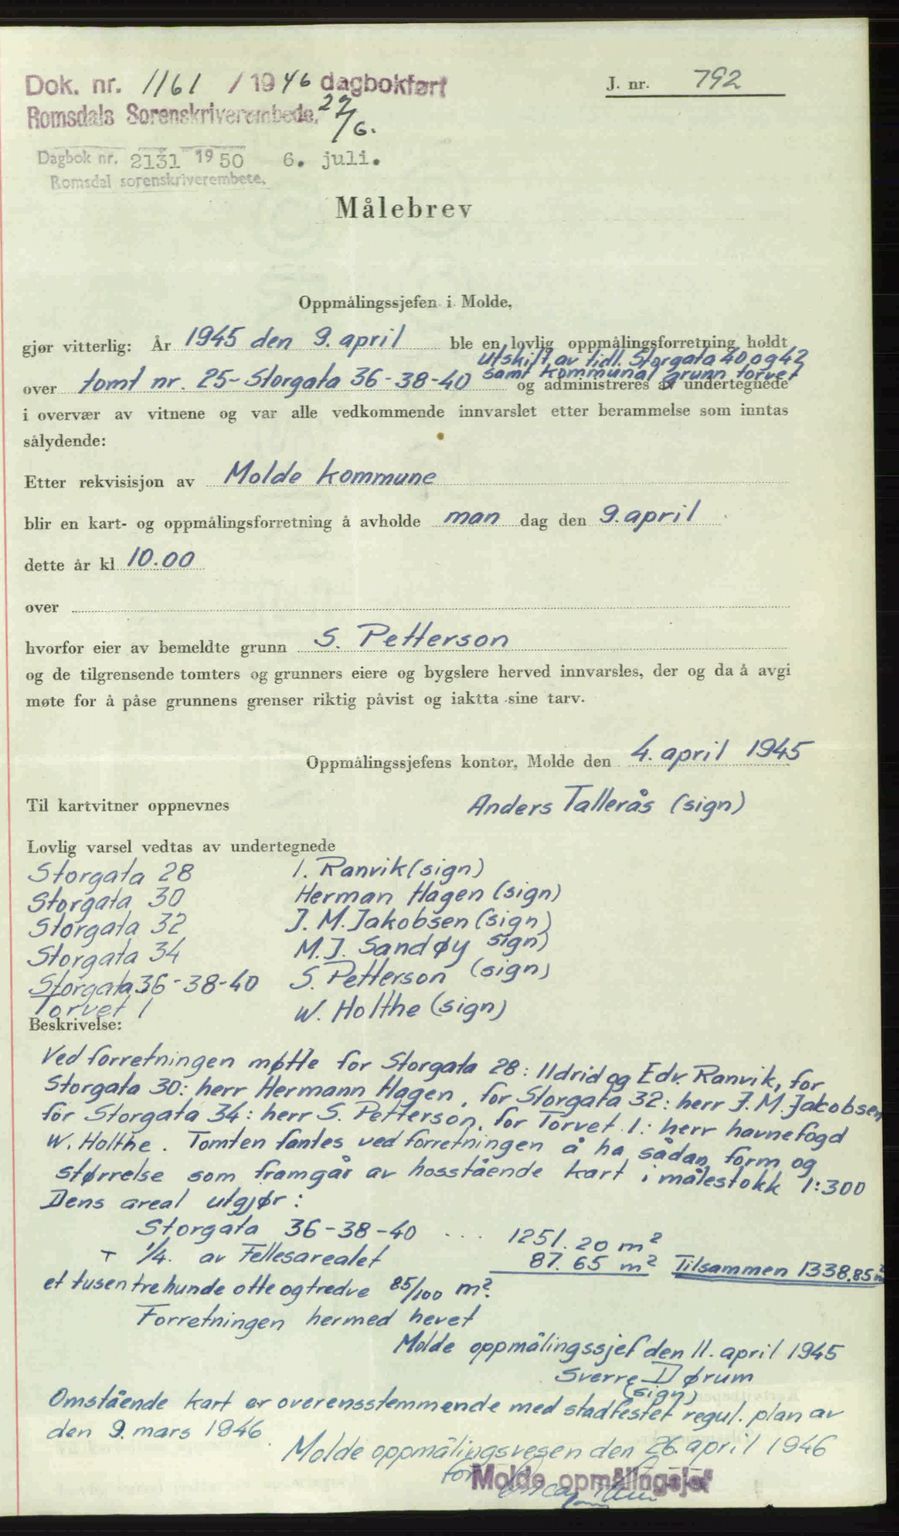 Dok. nr. 1161 / 1946 dagbokført
Romsdals Sorenskriverembede. 27/6.
J. nr. 792
Dagbok nr. 2131 1950 6. juli.
Romsdal sorenskriverembete.
Målebrev
Oppmålingssjefen i Molde,
gjør vitterlig: År 1945 den 9. april ble en lovlig oppmålingsforretning holdt
utskift av tidl. Storgata 40 og 42
samt kommunal grunn torvet
over tomt nr. 25 - Storgata 36-38-40 og administreres av undertegnede
i overvær av vitnene og var alle vedkommende innvarslet etter berammelse som inntas
sålydende:
Etter rekvisisjon av Molde kommune
blir en kart- og oppmålingsforretning å avholde man dag den 9. april
dette år kl 10.00
over
hvorfor eier av bemeldte grunn S. Petterson
og de tilgrensende tomters og grunners eiere og bygslere herved innvarsles, der og da å avgi
møte for å påse grunnens grenser riktig påvist og iaktta sine tarv.
Oppmålingssjefens kontor, Molde den 4. april 1945
Til kartvitner oppnevnes Anders Tallerås (sign)
Lovlig varsel vedtas av undertegnede
Storgata 28 I. Ranvik (sign)
Storgata 30 Herman Hagen (sign)
Storgata 32 J. M. Jakobsen (sign)
Storgata 34 M. J. Sandøy sign)
Storgata 36-38-40 S. Petterson (sign)
Torvet 1 W. Holthe (sign)
Beskrivelse:
Ved forretningen møtte for Storgata 28: Ildrid og Edv. Ranvik, for
Storgata 30: herr Hermann Hagen, for Storgata 32: herr J. M. Jakobsen,
for Storgata 34: herr S. Petterson, for Torvet 1: herr havnefogd
W. Holthe. Tomten fantes ved forretningen å ha sådan form og
størrelse som framgår av hosstående kart i målestokk 1:300
Dens areal utgjør:
Storgata 36-38-40 ... 1251.20 m²
+ 1/4. av Fellesarealet 87.65 m² Tilsammen 1338.85 m²
et tusen trehunde otte og tredve 85/100 m².
Forretningen hermed hevet
Molde oppmålingssjef den 11. april 1945
Sverre Dørum
(sign)
Omstående kart er overensstemmende med stadfestet regul. plan av
den 9. mars 1946
Molde oppmålingsvesen den 26. april 1946
for Molde opmålingsjef